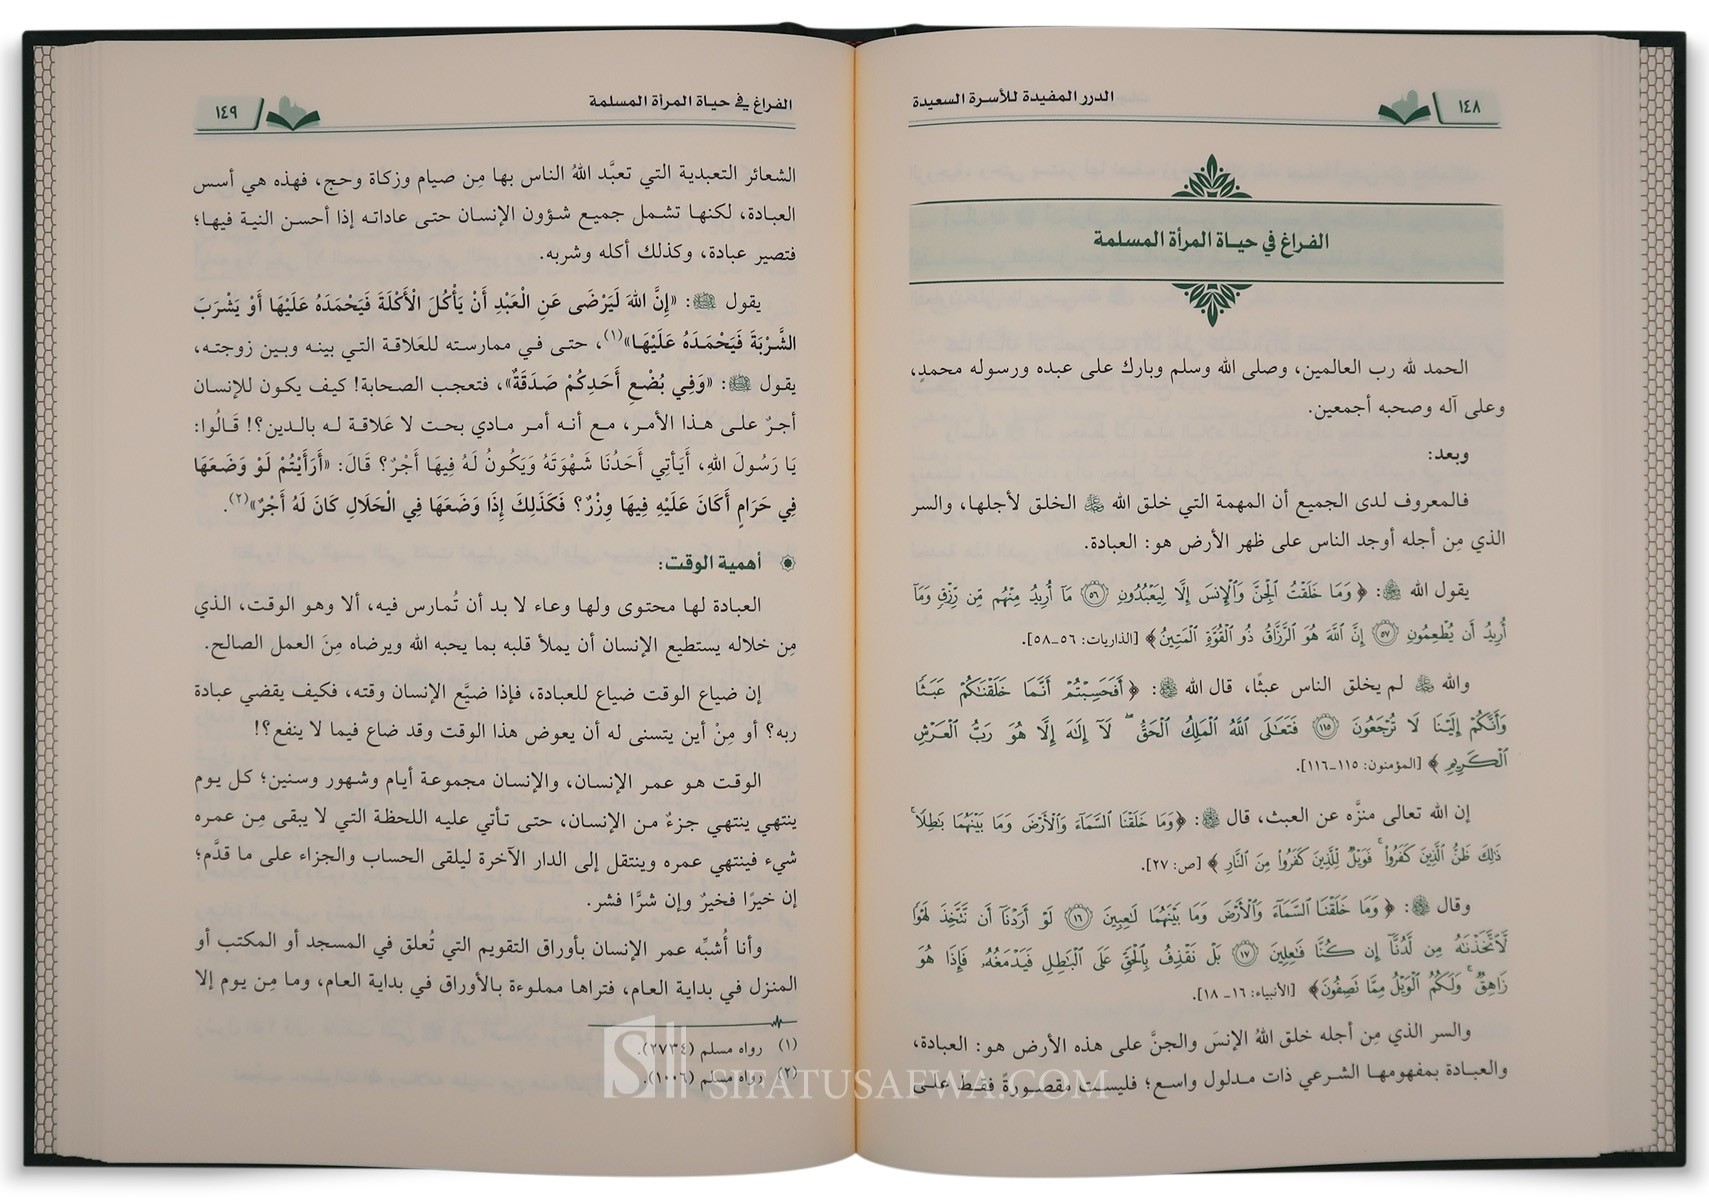 ١٤٨
الدرر المفيدة للأسرة السعيدة
الفراغ في حياة المرأة المسلمة
الحمد لله رب العالمين، وصلى الله وسلم وبارك على عبده ورسوله محمدٍ،
وعلى آله وصحبه أجمعين.
وبعد:
فالمعروف لدى الجميع أن المهمة التي خلق الله ﷻ الخلق لأجلها، والسر
الذي مِن أجله أوجد الناس على ظهر الأرض هو: العبادة.
يقول الله ﷻ: ﴿ وَمَا خَلَقْتُ الْجِنَّ وَالْإِنسَ إِلَّا لِيَعْبُدُونِ ٥٦ مَا أُرِيدُ مِنْهُم مِّن رِّزْقٍ وَمَا
أُرِيدُ أَن يُطْعِمُونِ ٥٧ إِنَّ اللَّهَ هُوَ الرَّزَّاقُ ذُو الْقُوَّةِ الْمَتِينُ﴾ [الذاريات: ٥٦-٥٨].
والله ﷻ لم يخلق الناس عبثًا، قال الله ﷻ: ﴿ أَفَحَسِبْتُمْ أَنَّمَا خَلَقْنَاكُمْ عَبَثًا
وَأَنَّكُمْ إِلَيْنَا لَا تُرْجَعُونَ ١١٥ فَتَعَالَى اللَّهُ الْمَلِكُ الْحَقُّ ۖ لَا إِلَٰهَ إِلَّا هُوَ رَبُّ الْعَرْشِ
الْكَرِيمِ ﴾ [المؤمنون: ١١٥-١١٦].
إن الله تعالى منزَّه عن العبث، قال ﷻ: ﴿وَمَا خَلَقْنَا السَّمَاءَ وَالْأَرْضَ وَمَا بَيْنَهُمَا بَاطِلًا ۚ
ذَٰلِكَ ظَنُّ الَّذِينَ كَفَرُوا ۚ فَوَيْلٌ لِّلَّذِينَ كَفَرُوا مِنَ النَّارِ ﴾ [ص: ٢٧].
وقال ﷻ: ﴿ وَمَا خَلَقْنَا السَّمَاءَ وَالْأَرْضَ وَمَا بَيْنَهُمَا لَاعِبِينَ ١٦ لَوْ أَرَدْنَا أَن نَّتَّخِذَ لَهْوًا
لَّاتَّخَذْنَاهُ مِن لَّدُنَّا إِن كُنَّا فَاعِلِينَ ١٧ بَلْ نَقْذِفُ بِالْحَقِّ عَلَى الْبَاطِلِ فَيَدْمَغُهُ فَإِذَا هُوَ
زَاهِقٌ ۚ وَلَكُمُ الْوَيْلُ مِمَّا تَصِفُونَ﴾ [الأنبياء: ١٦- ١٨].
والسر الذي مِن أجله خلق اللهُ الإنسَ والجنَّ على هذه الأرض هو: العبادة،
والعبادة بمفهومها الشرعي ذات مدلول واسع؛ فليست مقصورةً فقط على
الفراغ في حياة المرأة المسلمة
١٤٩
الشعائر التعبدية التي تعبَّد اللهُ الناس بها مِن صيام وزكاة وحج، فهذه هي أسس
العبادة، لكنها تشمل جميع شؤون الإنسان حتى عاداته إذا أحسن النية فيها؛
فتصير عبادة، وكذلك أكله وشربه.
يقول ﷺ: «إِنَّ اللهَ لَيَرْضَى عَنِ الْعَبْدِ أَنْ يَأْكُلَ الْأَكْلَةَ فَيَحْمَدَهُ عَلَيْهَا أَوْ يَشْرَبَ
الشَّرْبَةَ فَيَحْمَدَهُ عَلَيْهَا»(١)، حتى في ممارسته للعَلاقة التي بينه وبين زوجته،
يقول ﷺ: «وَفِي بُضْعِ أَحَدِكُمْ صَدَقَةٌ»، فتعجب الصحابة! كيف يكون للإنسان
أجرٌ على هذا الأمر، مع أنه أمر مادي بحت لا عَلاقة له بالدين؟! قَالُوا:
يَا رَسُولَ اللهِ، أَيَأتِي أَحَدُنَا شَهْوَتَهُ وَيَكُونُ لَهُ فِيهَا أَجْرٌ؟ قَالَ: «أَرَأَيْتُمْ لَوْ وَضَعَهَا
فِي حَرَامٍ أَكَانَ عَلَيْهِ فِيهَا وِزْرٌ؟ فَكَذَلِكَ إِذَا وَضَعَهَا فِي الْحَلَالِ كَانَ لَهُ أَجْرٌ»(٢).
أهمية الوقت:
العبادة لها محتوى ولها وعاء لا بد أن تُمارس فيه، ألا وهو الوقت، الذي
مِن خلاله يستطيع الإنسان أن يملأ قلبه بما يحبه الله ويرضاه مِنَ العمل الصالح.
إن ضياع الوقت ضياع للعبادة، فإذا ضيَّع الإنسان وقته، فكيف يقضي عبادة
ربه؟ أو مِنْ أين يتسنى له أن يعوض هذا الوقت وقد ضاع فيما لا ينفع؟!
الوقت هو عمر الإنسان، والإنسان مجموعة أيام وشهور وسنين؛ كل يوم
ينتهي ينتهي جزءٌ من الإنسان، حتى تأتي عليه اللحظة التي لا يبقى مِن عمره
شيء فينتهي عمره وينتقل إلى الدار الآخرة ليلقى الحساب والجزاء على ما قدَّم؛
إن خيرًا فخيرٌ وإن شرًّا فشر.
وأنا أُشبِّه عمر الإنسان بأوراق التقويم التي تُعلق في المسجد أو المكتب أو
المنزل في بداية العام، فتراها مملوءة بالأوراق في بداية العام، وما مِن يوم إلا
(١) رواه مسلم (٢٧٣٤).
(٢) رواه مسلم (١٠٠٦).
SIFATUSAFWA.COM